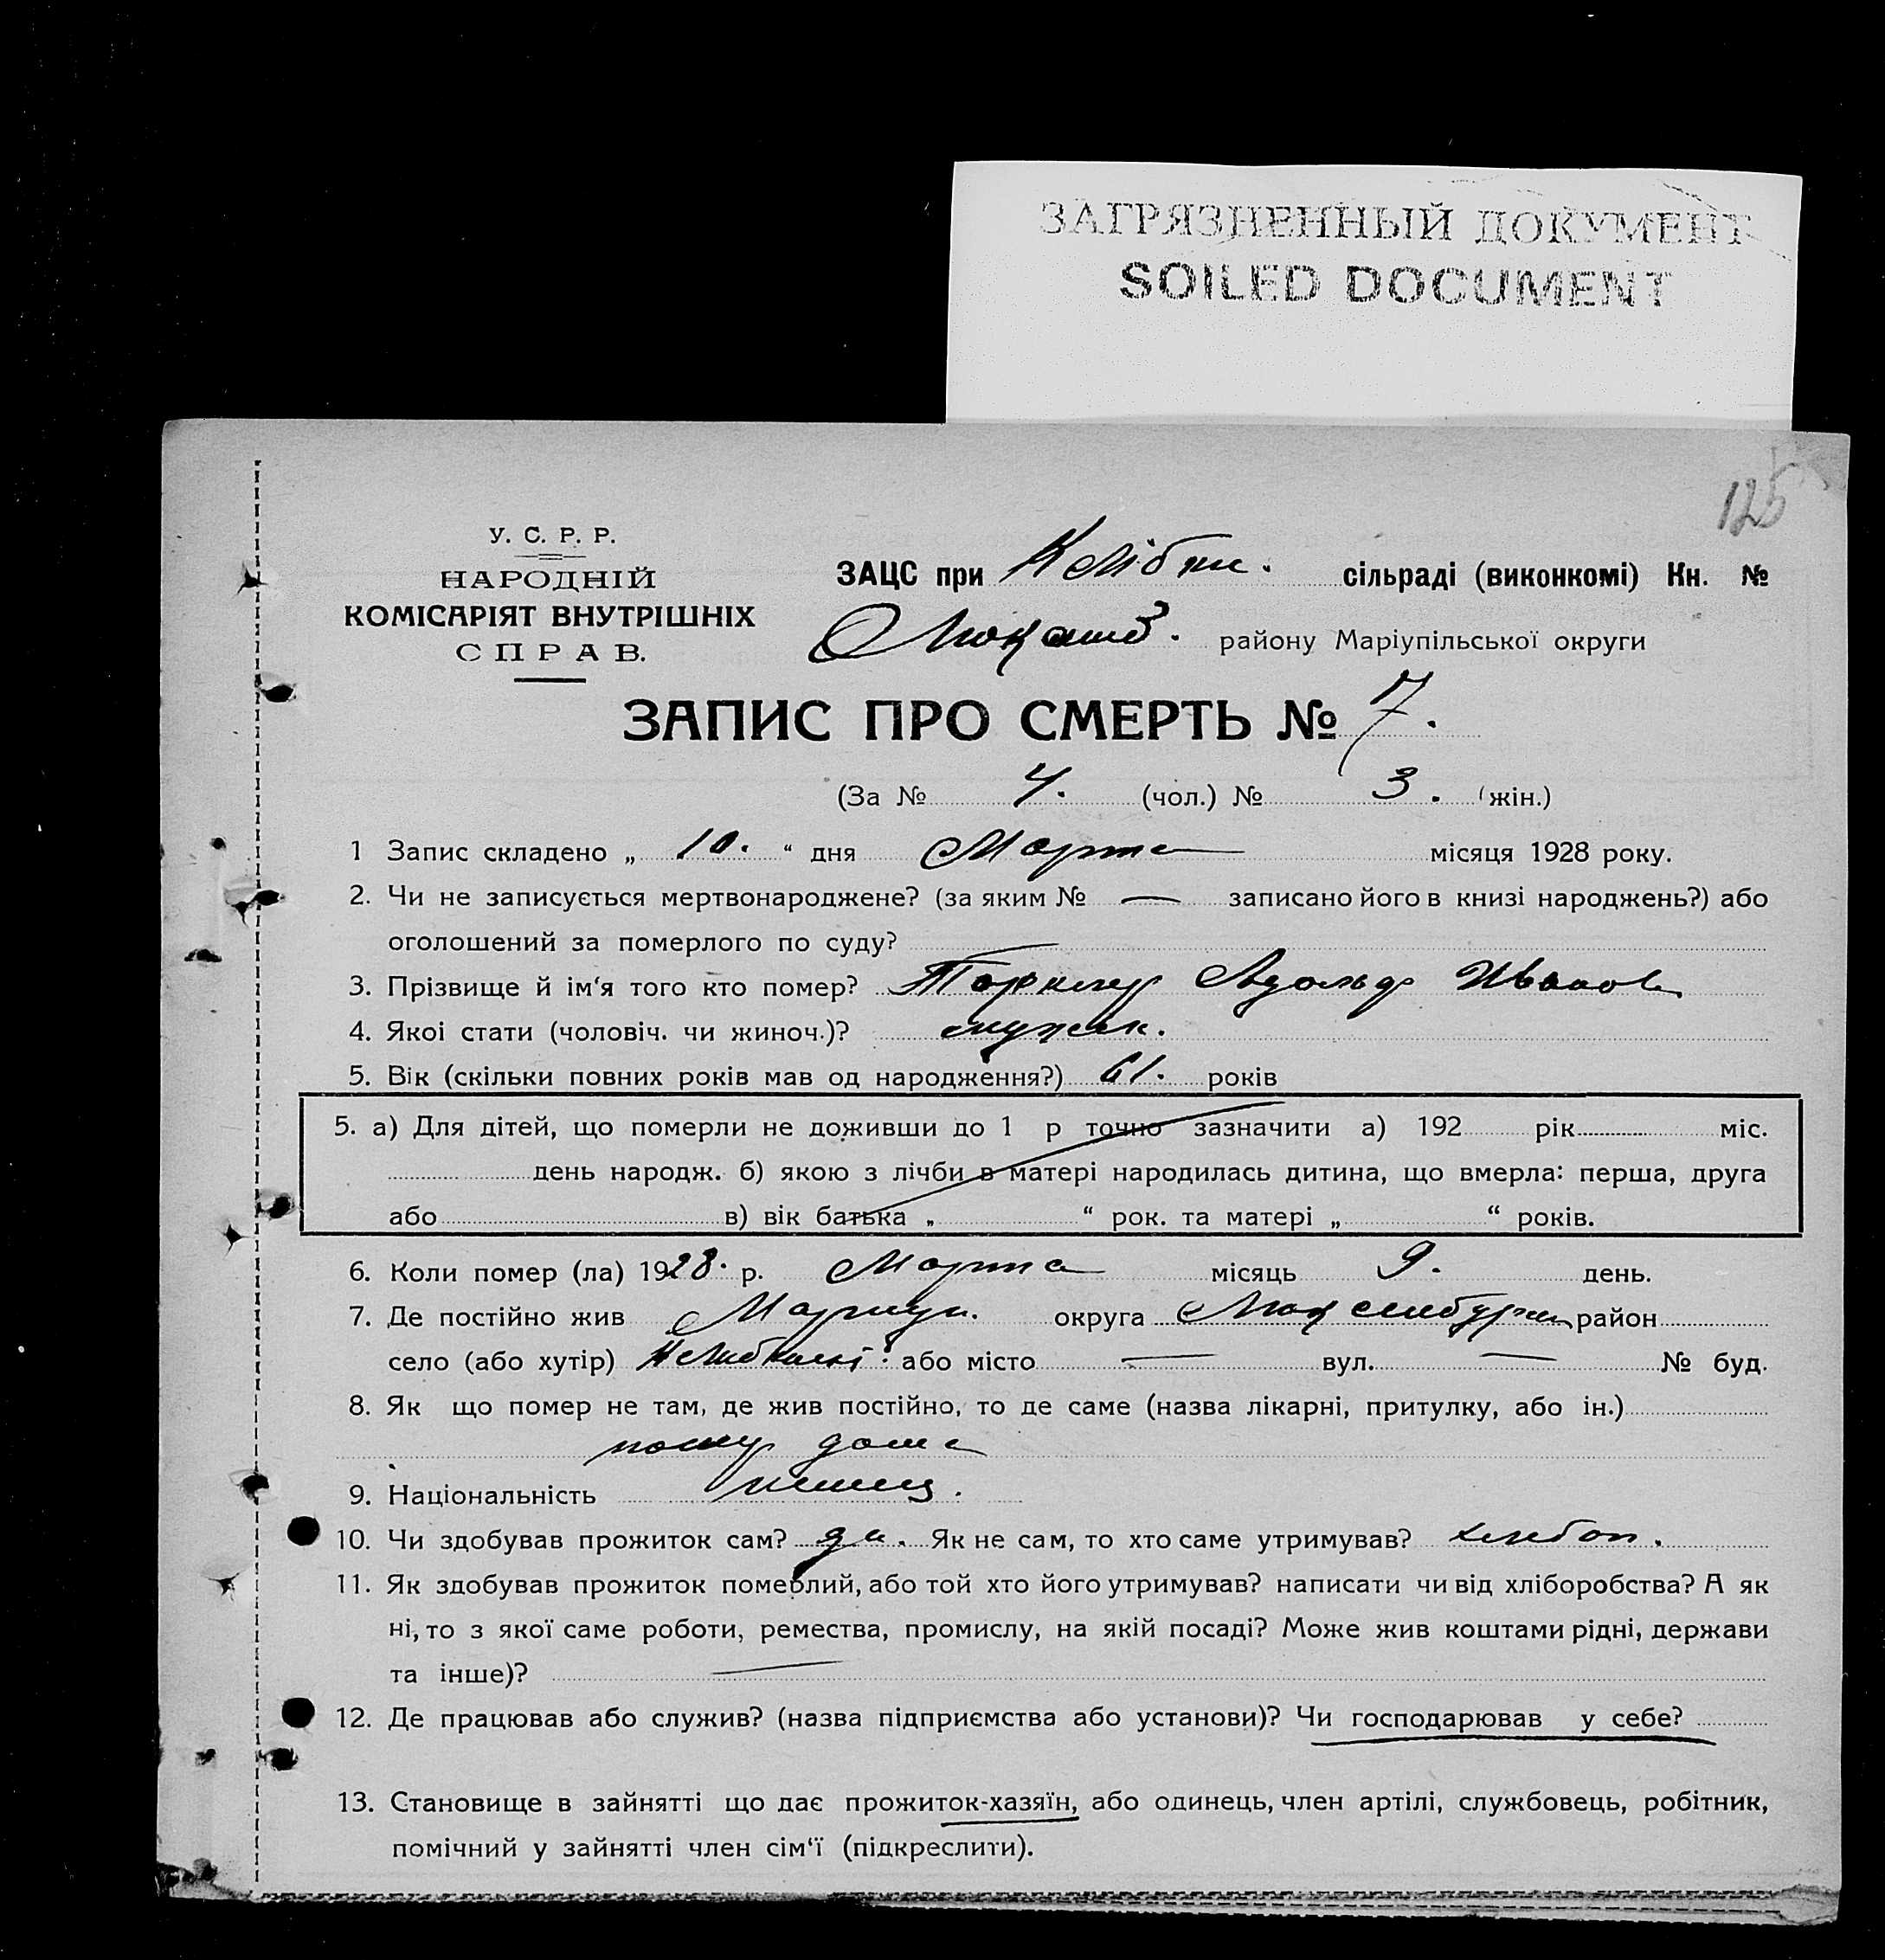 ЗАГРЯЗНЕННЫЙ ДОКУМЕНТ
SOILED DOCUMENT
125
У. С. Р. Р.
НАРОДНІЙ
КОМІСАРІЯТ ВНУТРІШНІХ
СПРАВ.
ЗАЦС при сільраді (виконкомі) Кн. №
району Маріупільської округи
ЗАПИС ПРО СМЕРТЬ № 7.
(За № 4. (чол.) № 3. (жін.)
1 Запис складено „ 10. “ дня Марта місяця 1928 року.
2. Чи не записується мертвонароджене? (за яким № — записано його в книзі народжень?) або
оголошений за померлого по суду?
3. Прізвище й ім‘я того кто помер? Адольф Иванов
4. Якоі стати (чоловіч. чи жиноч.)? мужск.
5. Вік (скільки повних років мав од народження?) 61. років
5. а) Для дітей, що померли не доживши до 1 р точно зазначити а) 192 рік міс.
день народж. б) якою з лічби в матері народилась дитина, що вмерла: перша, друга
або в) вік батька „ “ рок. та матері „ “ років.
6. Коли помер (ла) 1928. р. Марта місяць 9. день.
7. Де постійно жив Мариуп. округа Люксембургск район
село (або хутір) або місто — вул. — № буд.
8. Як що помер не там, де жив постійно, то де саме (назва лікарні, притулку, або ін.)
дома
9. Національність немец.
10. Чи здобував прожиток сам? да. Як не сам, то хто саме утримував? хлебоп.
11. Як здобував прожиток померлий, або той хто його утримував? написати чи від хліборобства? А як
ні, то з якої саме роботи, ремества, промислу, на якій посаді? Може жив коштами рідні, держави
та інше)? —
12. Де працював або служив? (назва підприємства або установи)? Чи господарював у себе?
13. Становище в зайнятті що дає прожиток-хазяїн, або одинець, член артілі, службовець, робітник,
помічний у зайнятті член сім‘ї (підкреслити).